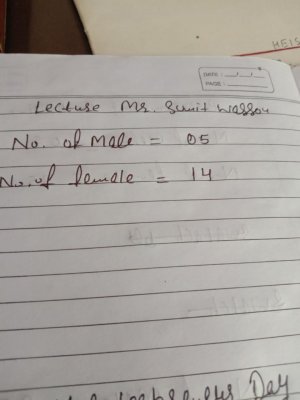 HEIS
DATE: __/__/__
PAGE:
Lecture Mr. Sumit
No. of Male = 05
No. of female = 14
Day